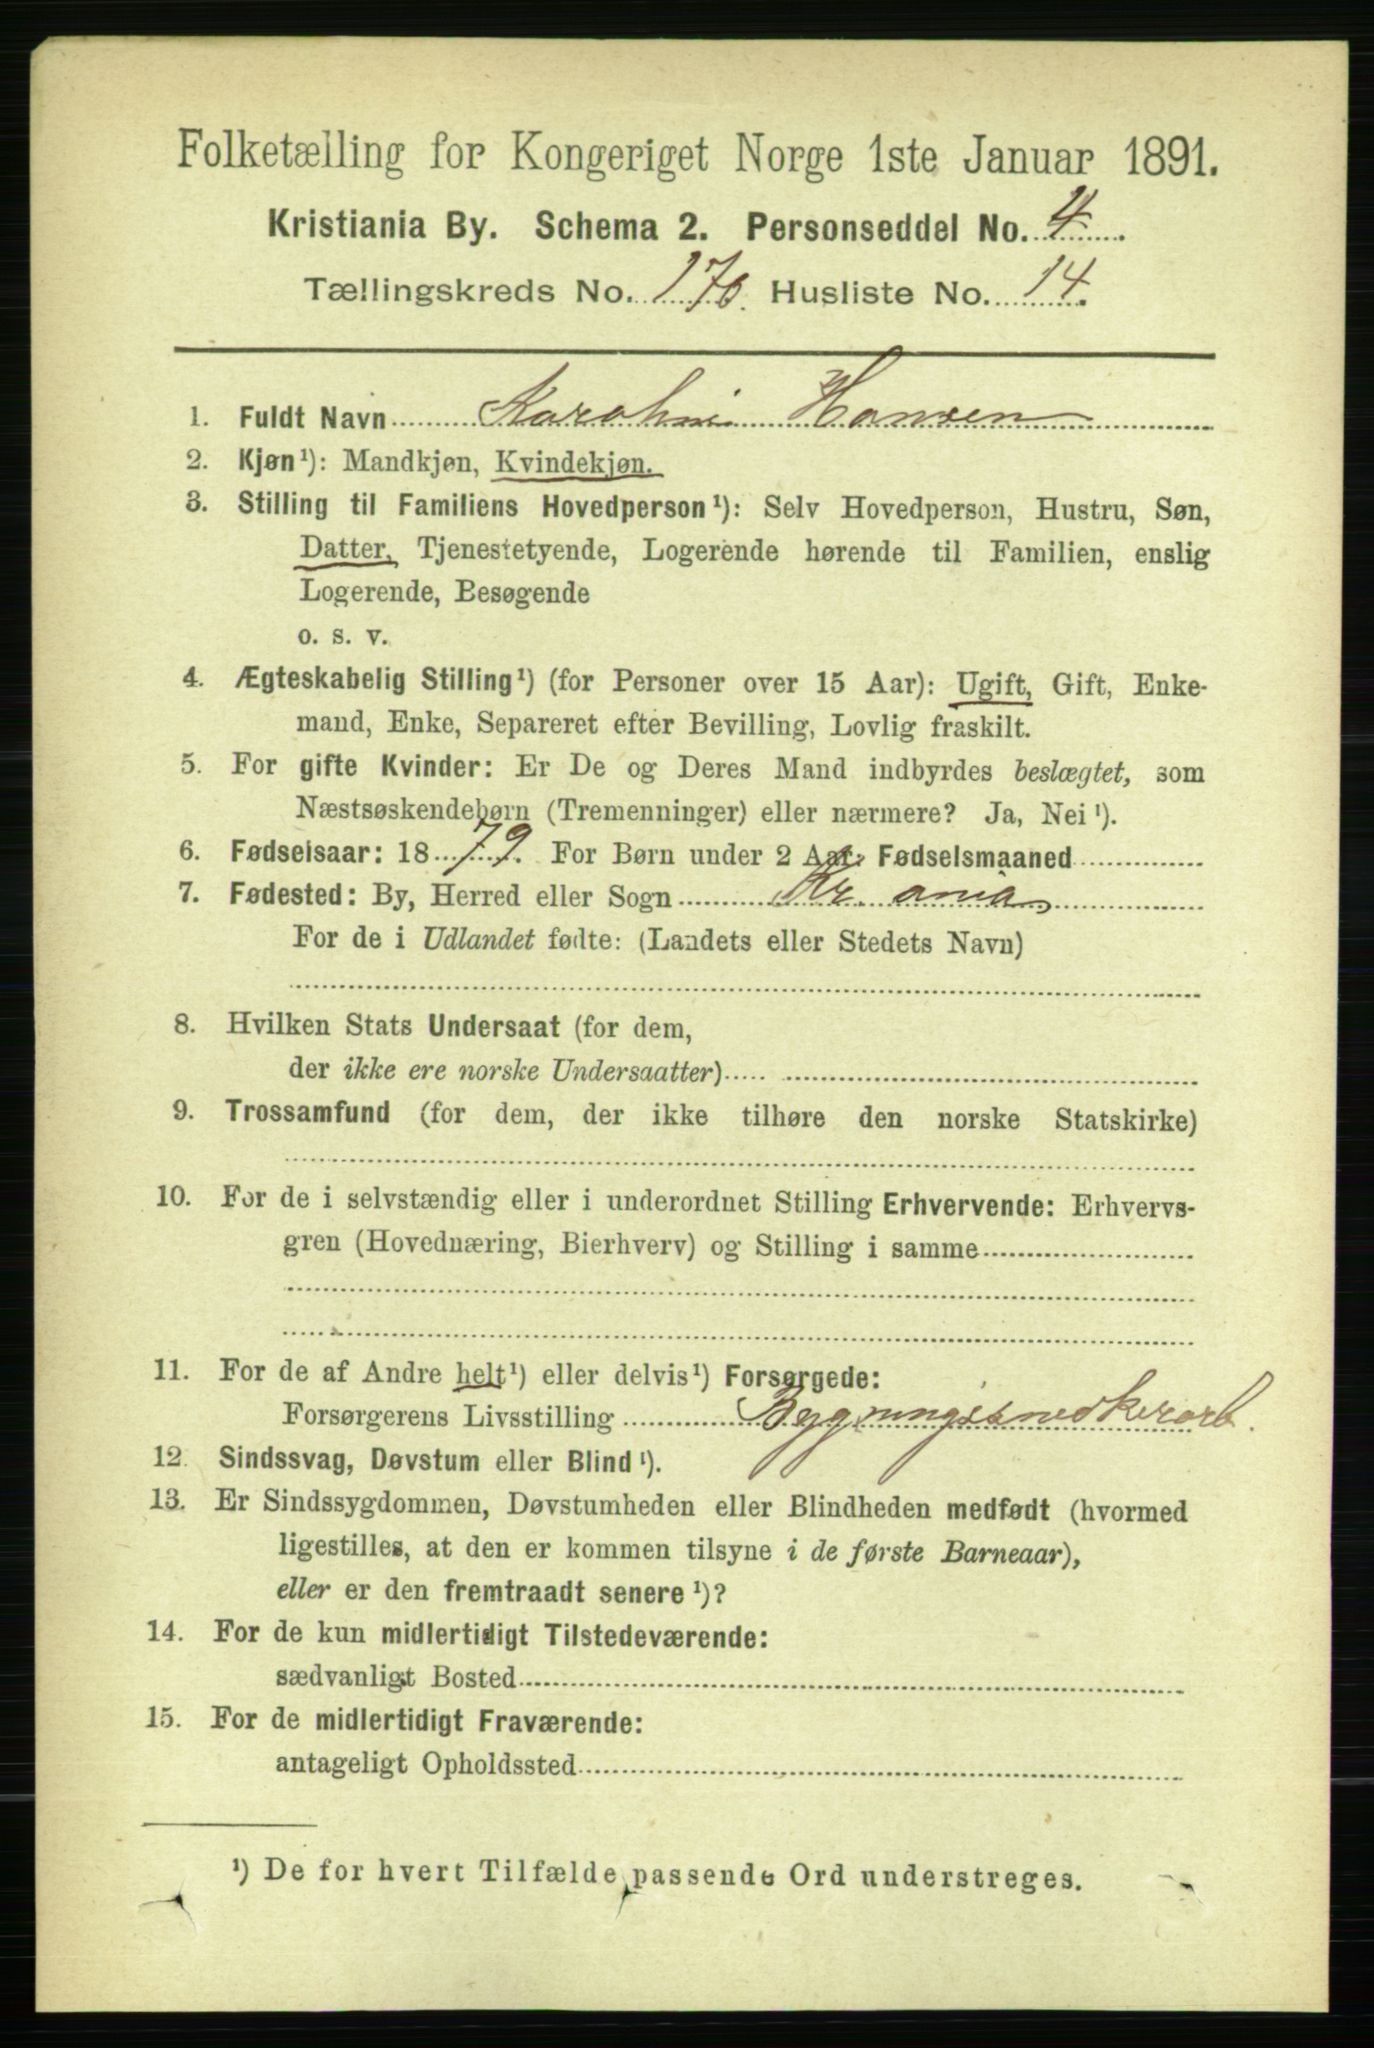 Folketælling for Kongeriget Norge 1ste Januar 1891.
Kristiania By. Schema 2. Personseddel No. 4.
Tællingskreds No. 170. Husliste No. 14.
1. Fuldt Navn Karoline Hansen
2. Kjøn¹): Mandkjøn, Kvindekjøn.
3. Stilling til Familiens Hovedperson¹): Selv Hovedperson, Hustru, Søn,
Datter, Tjenestetyende, Logerende hørende til Familien, enslig
Logerende, Besøgende
o. s. v.
4. Ægteskabelig Stilling¹) (for Personer over 15 Aar): Ugift, Gift, Enke-
mand, Enke, Separeret efter Bevilling, Lovlig fraskilt.
5. For gifte Kvinder: Er De og Deres Mand indbyrdes beslægtet, som
Næstsøskendebørn (Tremenninger) eller nærmere? Ja, Nei¹).
6. Fødselsaar: 1879. For Børn under 2 Aar: Fødselsmaaned
7. Fødested: By, Herred eller Sogn Kr.ania
For de i Udlandet fødte: (Landets eller Stedets Navn)
8. Hvilken Stats Undersaat (for dem,
der ikke ere norske Undersaatter)
9. Trossamfund (for dem, der ikke tilhøre den norske Statskirke)
10. For de i selvstændig eller i underordnet Stilling Erhvervende: Erhvervs-
gren (Hovednæring, Bierhverv) og Stilling i samme
11. For de af Andre helt¹) eller delvis¹) Forsørgede:
Forsørgerens Livsstilling Bygningssnedkerarb.
12. Sindssvag, Døvstum eller Blind¹).
13. Er Sindssygdommen, Døvstumheden eller Blindheden medfødt (hvormed
ligestilles, at den er kommen tilsyne i de første Barneaar),
eller er den fremtraadt senere¹)?
14. For de kun midlertidigt Tilstedeværende:
sædvanligt Bosted
15. For de midlertidigt Fraværende:
antageligt Opholdssted
¹) De for hvert Tilfælde passende Ord understreges.